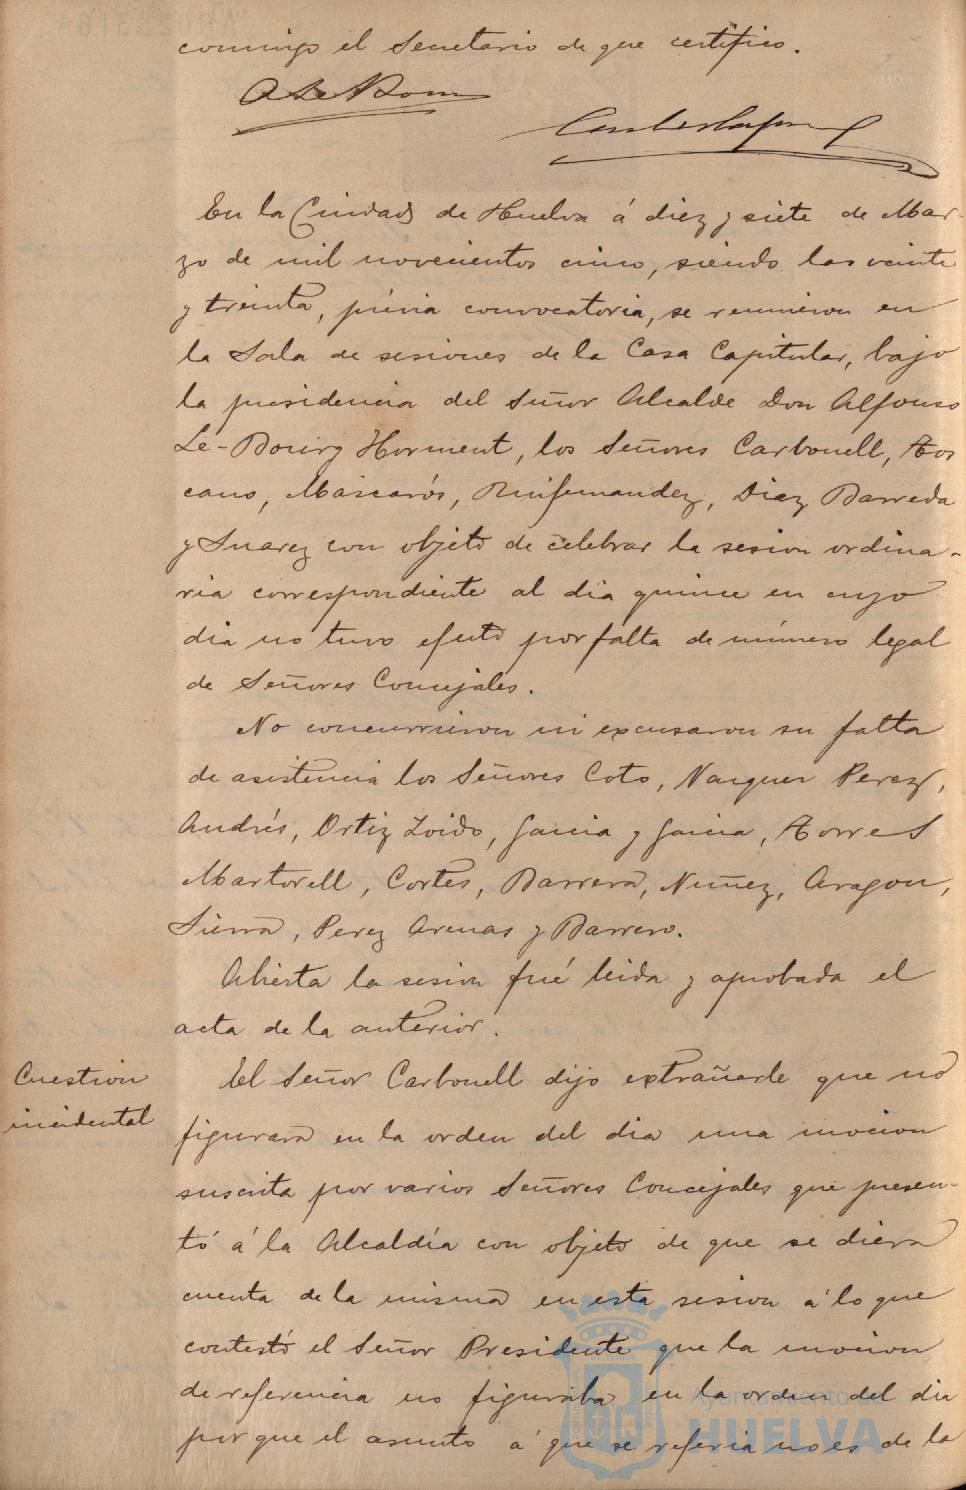 conmigo el Secretario de que certifico.
En la Ciudad de Huelva á diez y siete de Mar-
zo de mil novecientos cinco, siendo las veinte
y treinta, prévia convocatoria, se reunieron en
la Sala de sesiones de la Casa Capitular, bajo
la presidencia del Señor Alcalde Don Alfonso
Le-Bourg Horment, los Señores Carbonell, Tos
cano, Mascarós, Ruifernandez, Diaz Barreda
y Suarez con objeto de celebrar la sesion ordina-
ria correspondiente al dia quince en cuyo
dia no tuvo efecto por falta de número legal
de Señores Concejales.
No concurrieron ni excusaron su falta
de asistencia los Señores Coto, Vazquez Perez,
Andrés, Ortiz Zoido, Garcia y Garcia, Torres
Martorell, Cortés, Barrera, Nuñez, Aragon,
Sierra, Perez Arenas y Barrero.
Abierta la sesion fué leida y aprobada el
acta de la anterior.
Cuestion
incidental
El Señor Carbonell dijo extrañarle que no
figurara en la orden del dia una mocion
suscrita por varios Señores Concejales que presen-
tó á la Alcaldía con objeto de que se diera
cuenta de la misma en esta sesion á lo que
contestó el Señor Presidente que la mocion
de referencia no figuraba en la orden del dia
por que el asunto á que se referia no es de la
Ayuntamiento de
HUELVA